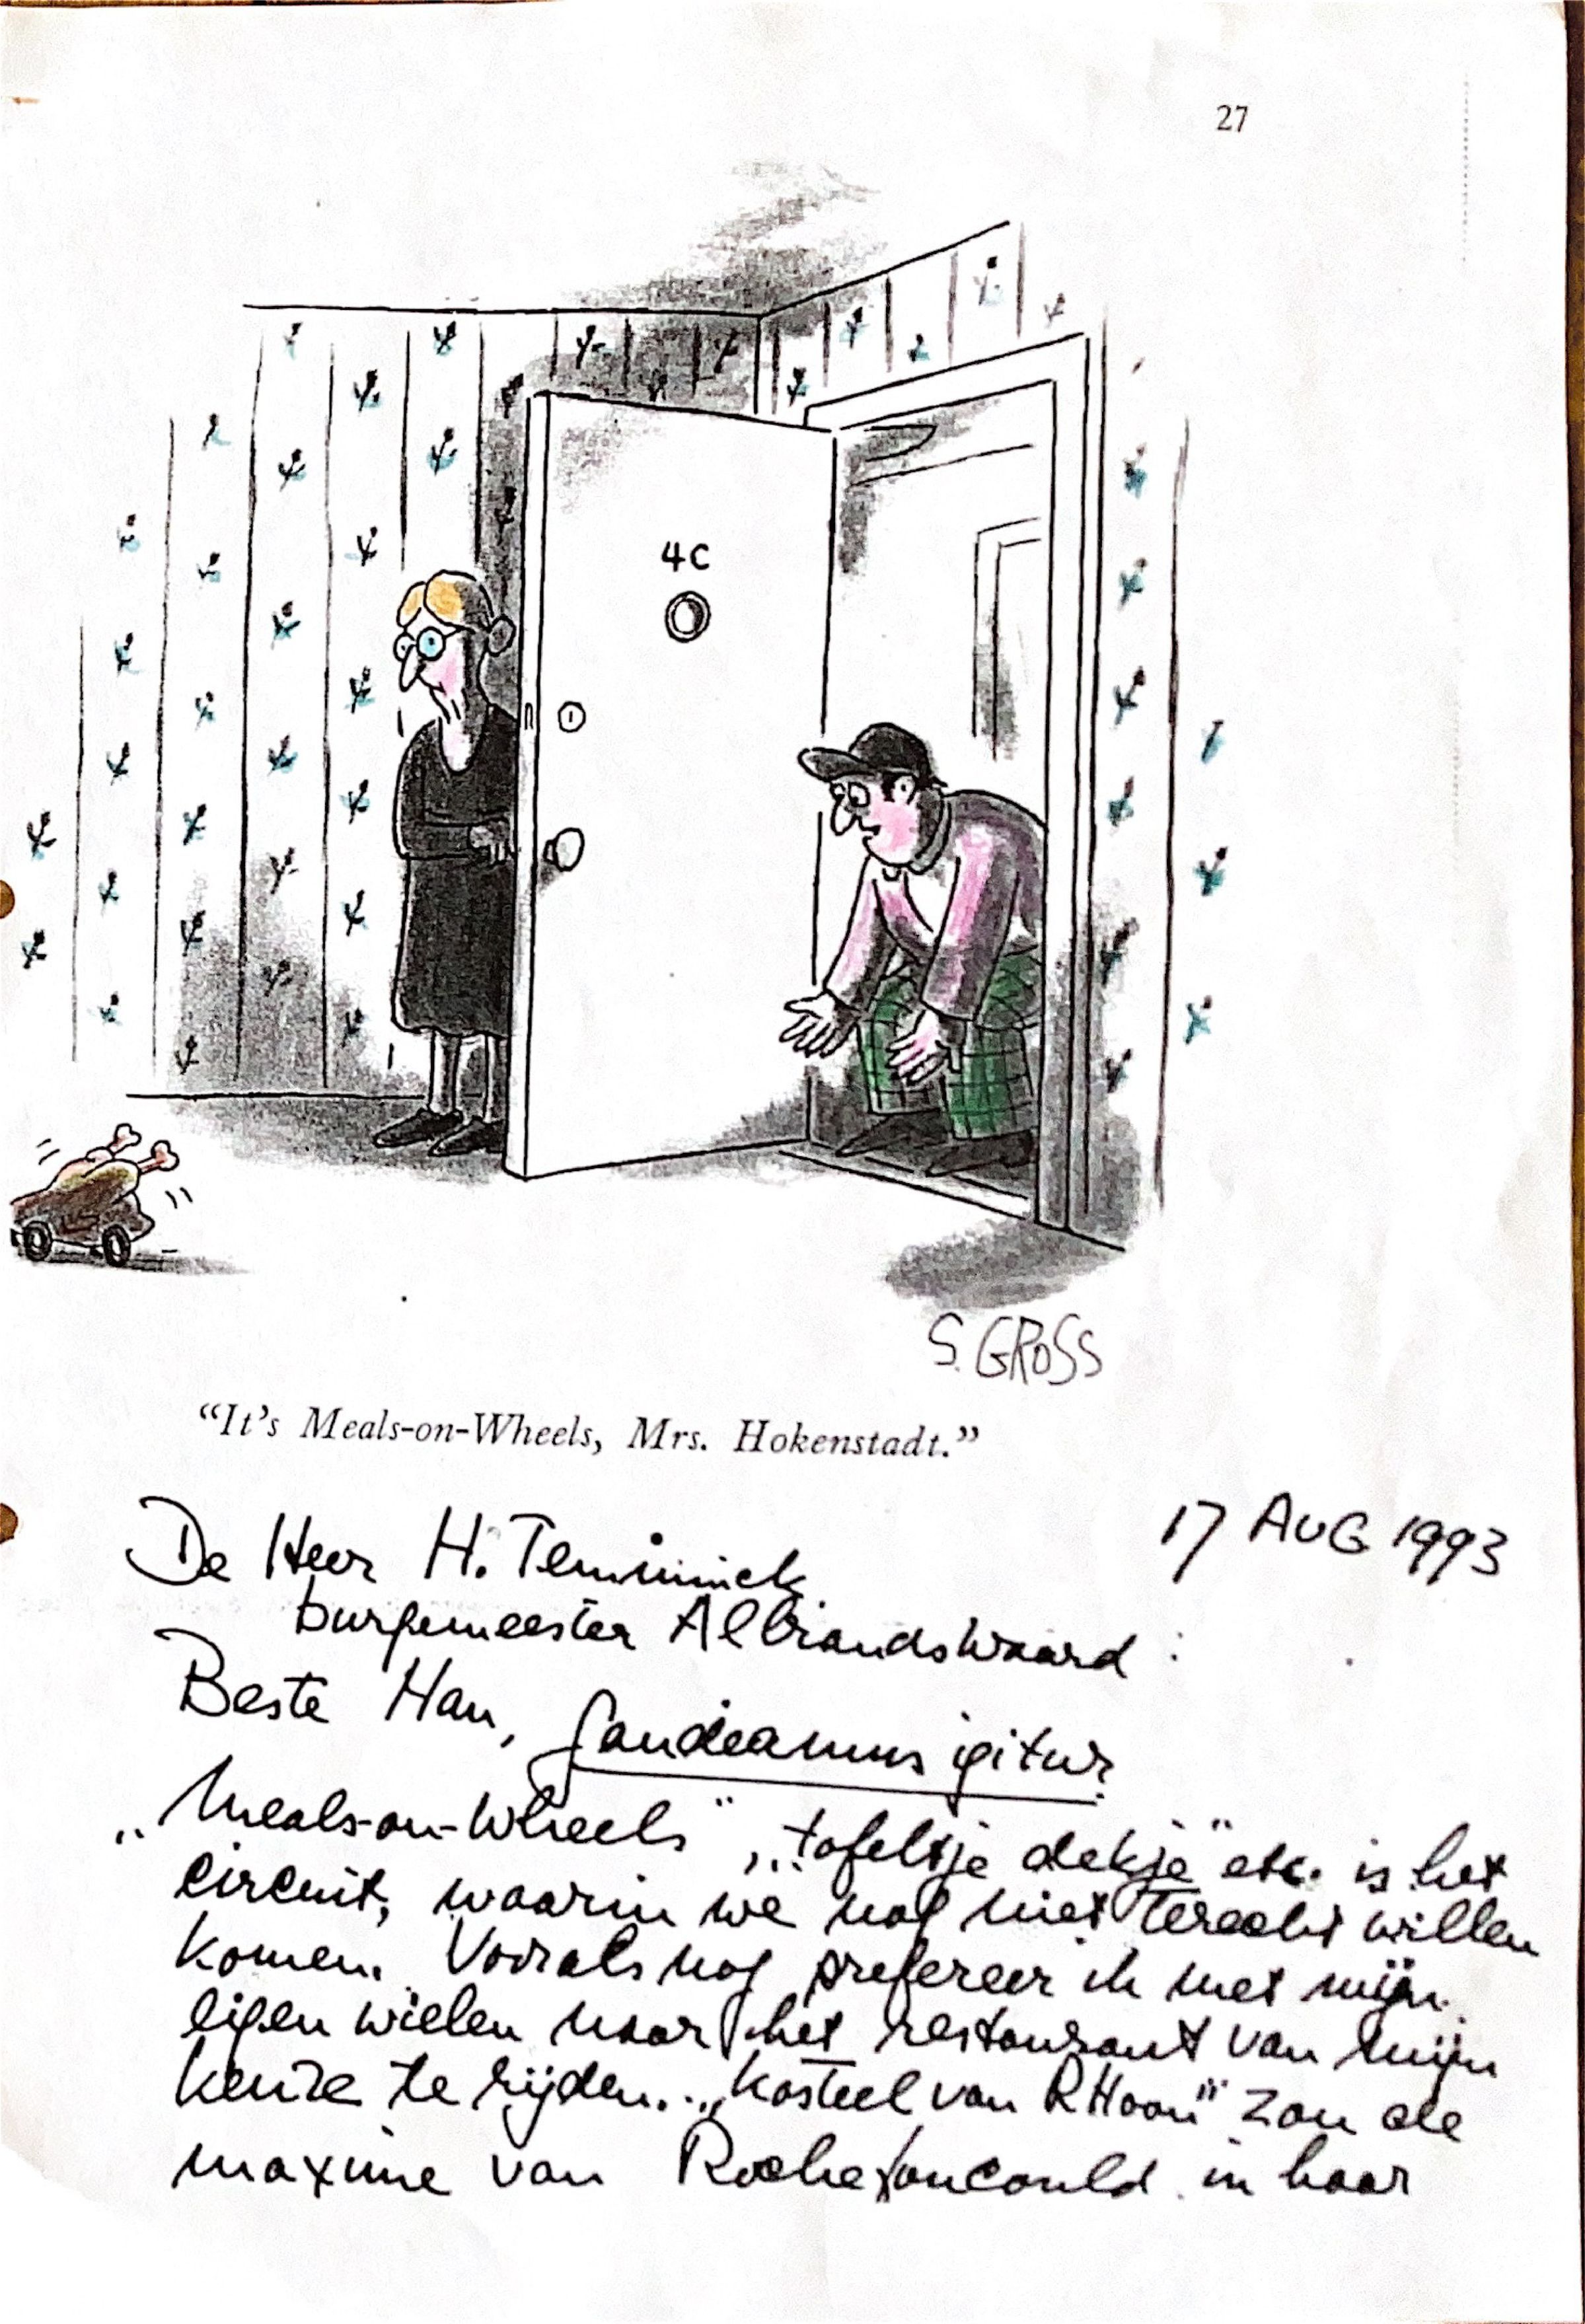 27
4C
S. GROSS
“It's Meals-on-Wheels, Mrs. Hokenstadt.”
17 AUG 1993
De Heer H. Temminck
burgemeester Albrandswaard :
Beste Han, Gaudeamus igitur
„Meals-on-Wheels", „tafeltje dekje" etc. is het
circuit, waarin we nog niet terecht willen
komen. Vooralsnog prefereer ik met mijn
eigen wielen naar het restaurant van mijn
keuze te rijden. „Kasteel van RHoon" zou de
maxime van Rochefoucould in haar